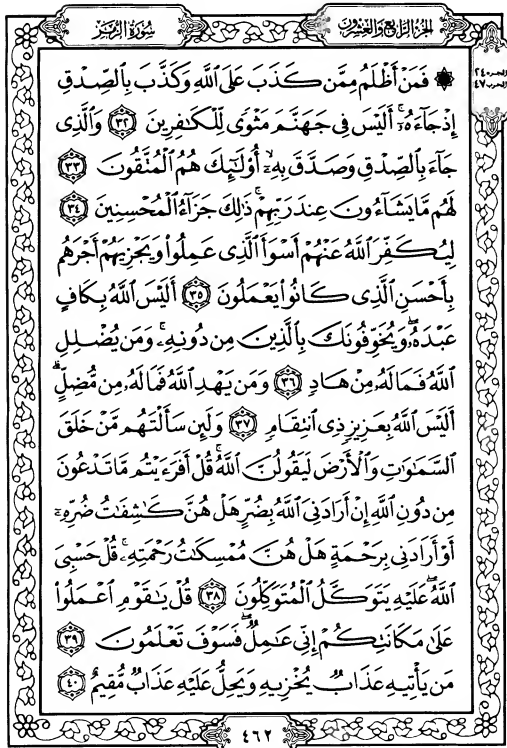 الجزء الرابع والعشرون
سورة الزمر
۞ فَمَنْ أَظْلَمُ مِمَّن كَذَبَ عَلَى ٱللَّهِ وَكَذَّبَ بِٱلصِّدْقِ
إِذْ جَآءَهُۥٓ ۚ أَلَيْسَ فِى جَهَنَّمَ مَثْوًى لِّلْكَٰفِرِينَ ٣٢ وَٱلَّذِى
جَآءَ بِٱلصِّدْقِ وَصَدَّقَ بِهِۦٓ ۙ أُو۟لَٰٓئِكَ هُمُ ٱلْمُتَّقُونَ ٣٣
لَهُم مَّا يَشَآءُونَ عِندَ رَبِّهِمْ ۚ ذَٰلِكَ جَزَآءُ ٱلْمُحْسِنِينَ ٣٤
لِيُكَفِّرَ ٱللَّهُ عَنْهُمْ أَسْوَأَ ٱلَّذِى عَمِلُوا۟ وَيَجْزِيَهُمْ أَجْرَهُم
بِأَحْسَنِ ٱلَّذِى كَانُوا۟ يَعْمَلُونَ ٣٥ أَلَيْسَ ٱللَّهُ بِكَافٍ
عَبْدَهُۥ ۖ وَيُخَوِّفُونَكَ بِٱلَّذِينَ مِن دُونِهِۦ ۚ وَمَن يُضْلِلِ
ٱللَّهُ فَمَا لَهُۥ مِنْ هَادٍ ٣٦ وَمَن يَهْدِ ٱللَّهُ فَمَا لَهُۥ مِن مُّضِلٍّ ۗ
أَلَيْسَ ٱللَّهُ بِعَزِيزٍ ذِى ٱنتِقَامٍ ٣٧ وَلَئِن سَأَلْتَهُم مَّنْ خَلَقَ
ٱلسَّمَٰوَٰتِ وَٱلْأَرْضَ لَيَقُولُنَّ ٱللَّهُ ۚ قُلْ أَفَرَءَيْتُم مَّا تَدْعُونَ
مِن دُونِ ٱللَّهِ إِنْ أَرَادَنِىَ ٱللَّهُ بِضُرٍّ هَلْ هُنَّ كَٰشِفَٰتُ ضُرِّهِۦٓ
أَوْ أَرَادَنِى بِرَحْمَةٍ هَلْ هُنَّ مُمْسِكَٰتُ رَحْمَتِهِۦ ۚ قُلْ حَسْبِىَ
ٱللَّهُ ۖ عَلَيْهِ يَتَوَكَّلُ ٱلْمُتَوَكِّلُونَ ٣٨ قُلْ يَٰقَوْمِ ٱعْمَلُوا۟
عَلَىٰ مَكَانَتِكُمْ إِنِّى عَٰمِلٌ ۖ فَسَوْفَ تَعْلَمُونَ ٣٩
مَن يَأْتِيهِ عَذَابٌ يُخْزِيهِ وَيَحِلُّ عَلَيْهِ عَذَابٌ مُّقِيمٌ ٤٠
الجزء ٢٤
الحزب ٤٧
٤٦٢